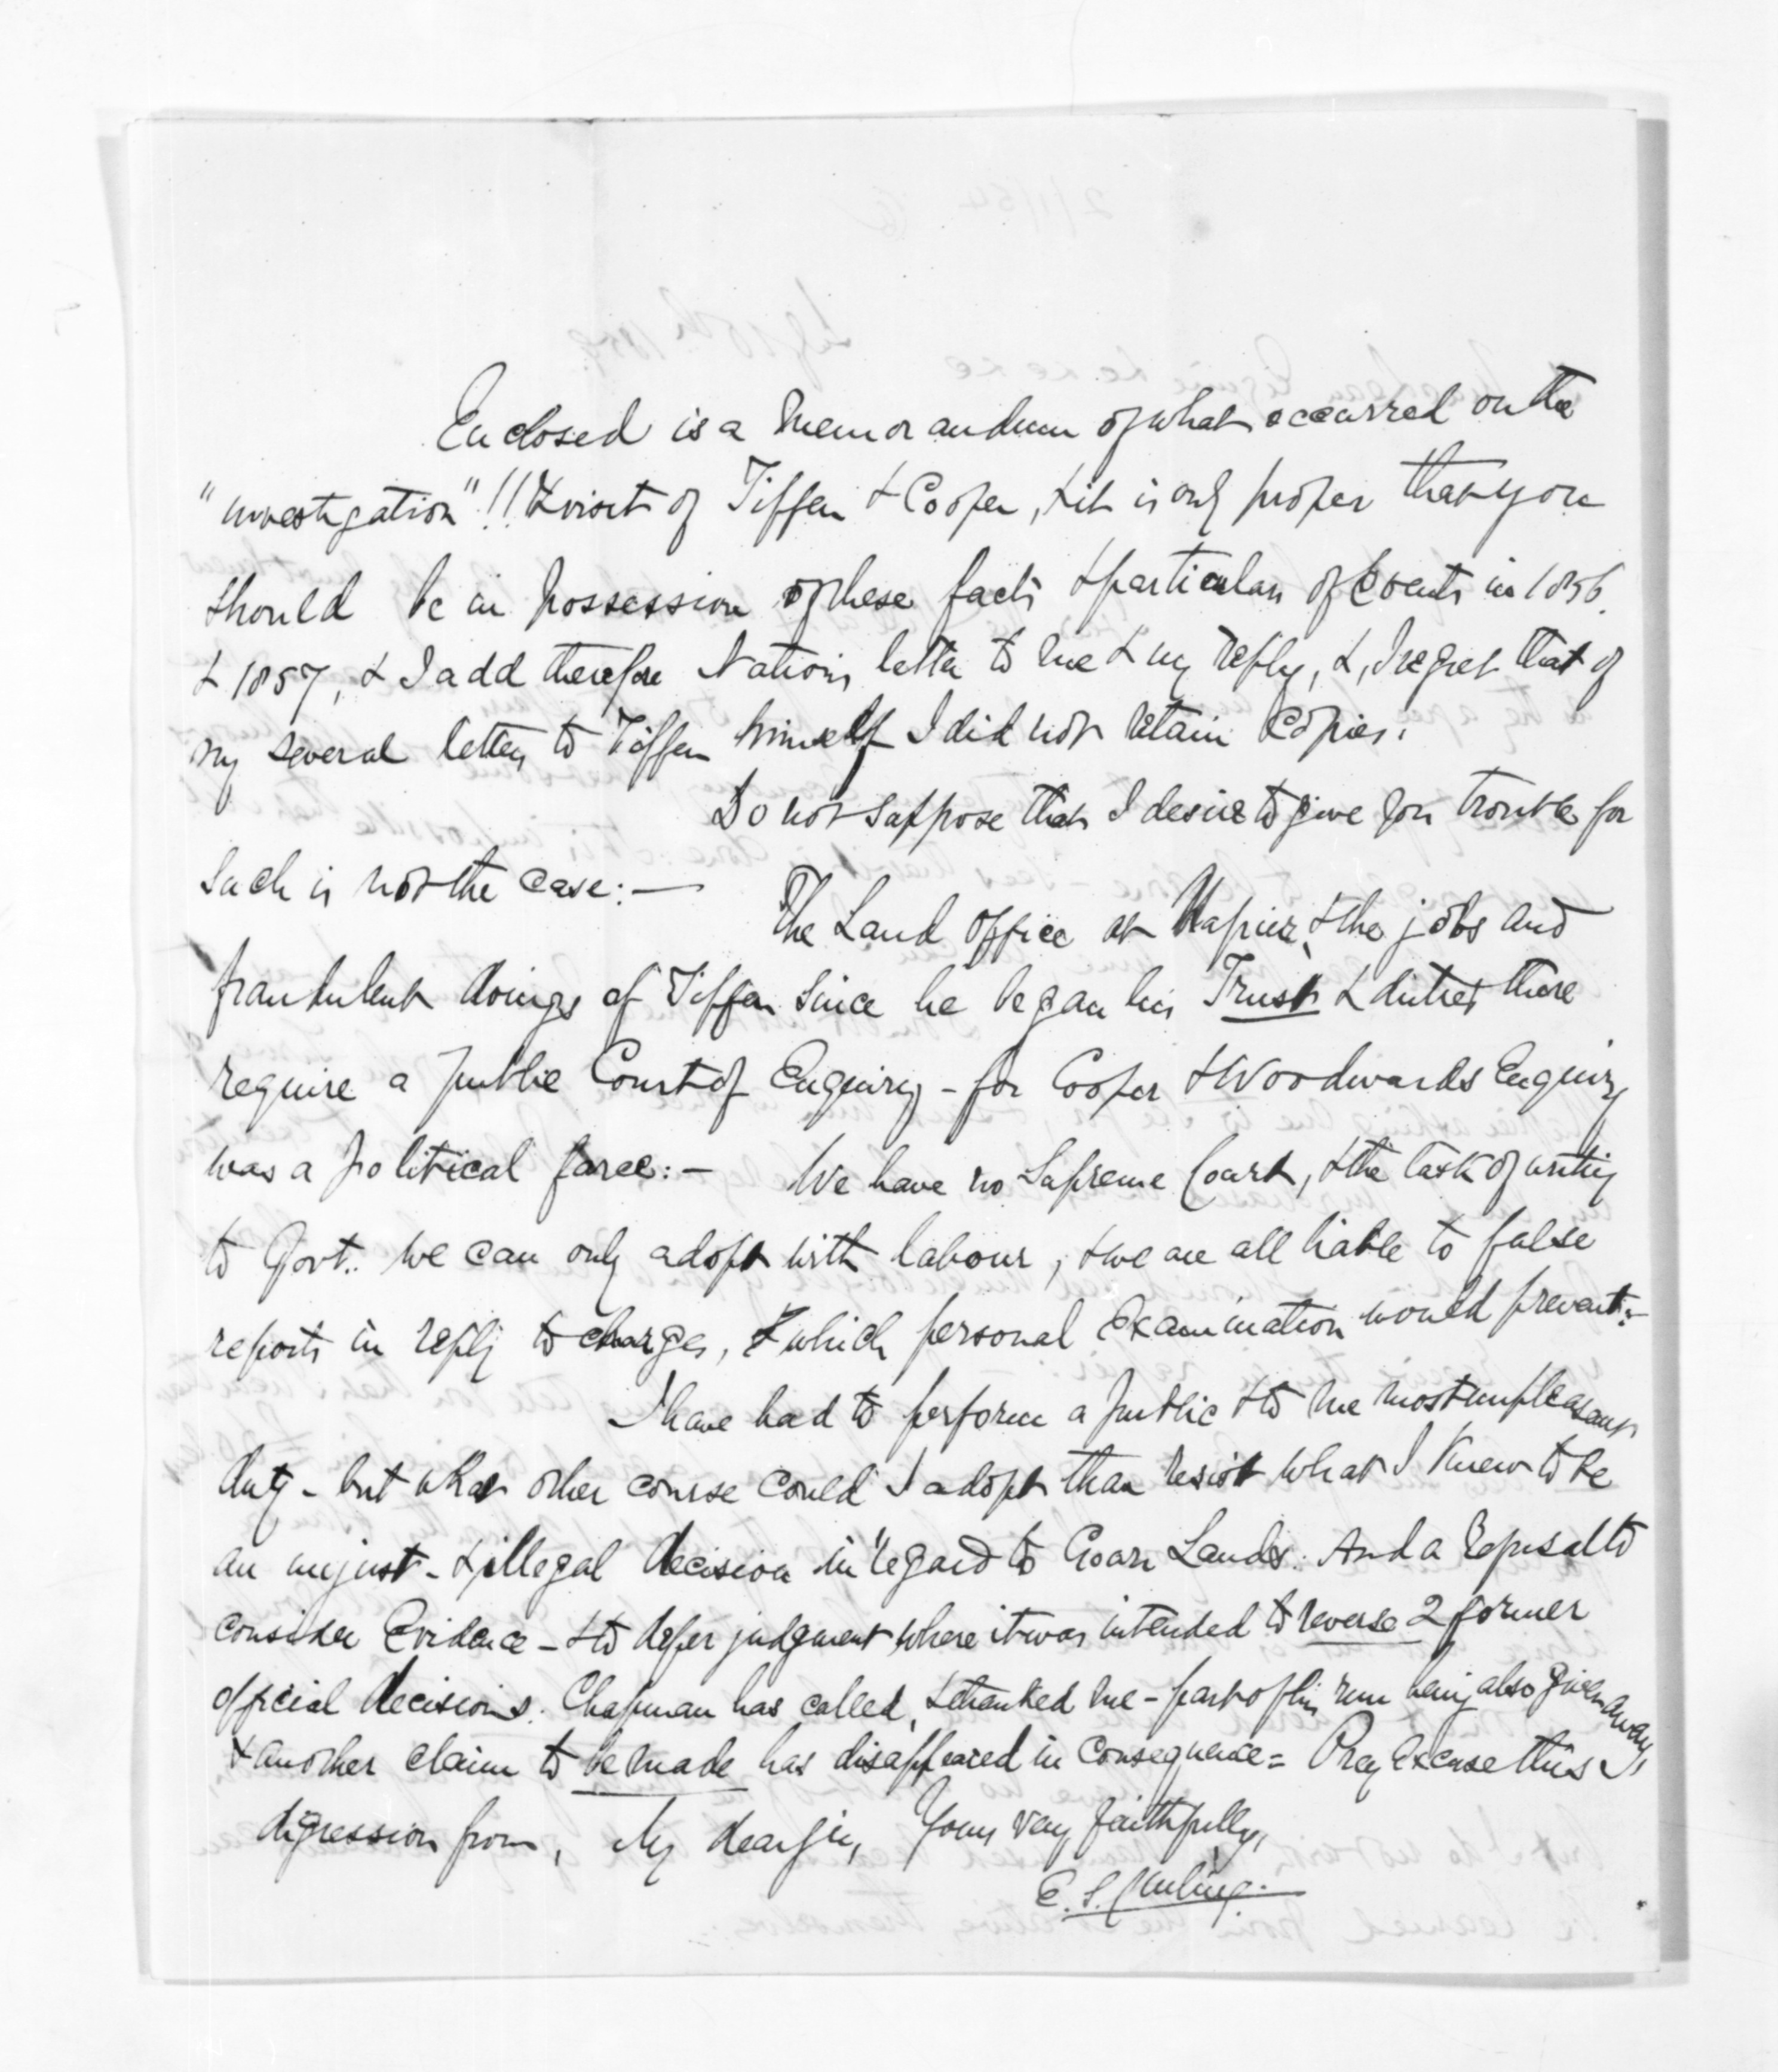 Enclosed is a Memorandum of what occurred on the
"investigation"!! & visit of Tiffen & Cooper, & it is only proper that you
should be in possession of these facts & particulars of Events in 1856.
& 1857, & I add therefore letter to me & my reply, &, I regret that of
my several letters to Tiffen himself I did not retain Copies.
Do not suppose that I desire to give you trouble for
such is not the case:—
The Land Office at Napier, & the jobs and
fraudulent doings of Tiffen since he began his Trust & duties there
require a public Court of Enquiry - for Cooper & Woodwards Enquiry
was a political farce:— We have no Supreme Court, & the task of writing
to Govt. we can only adopt with labour, & we are all liable to false
reports in reply to charges, & which personal Examination would prevent:-
I have had to perform a public & to me most unpleasant
duty - but what other course could I adopt than resist what I knew to be
an unjust - & illegal decision in regard to Lands. And a refusal to
consider Evidence - & to defer judgment where it was intended to reverse 2 former
official decisions. Chapman has called, & thanked me - part of his run being also given away
& another claim to be made has disappeared in consequence = Pray Excuse this
digression from, My dear Sir, Yours very faithfully,
E. S. Curling.